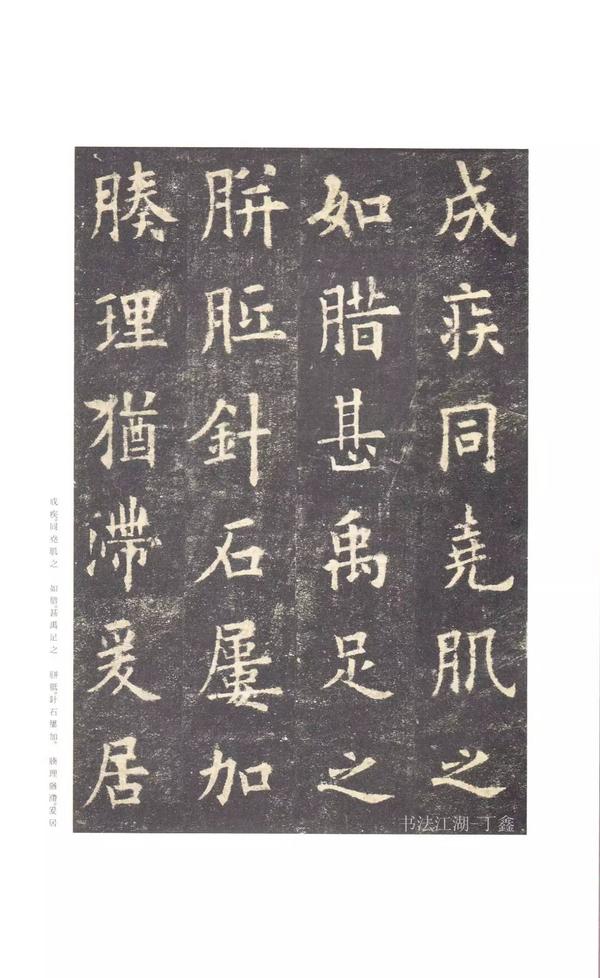 成疾同堯肌之
如腊甚禹足之
胼胝針石屢加
腠理猶滯爰居
成疾同堯肌之 如腊甚禹足之 胼胝針石屢加 腠理猶滯爰居
书法江湖-丁鑫